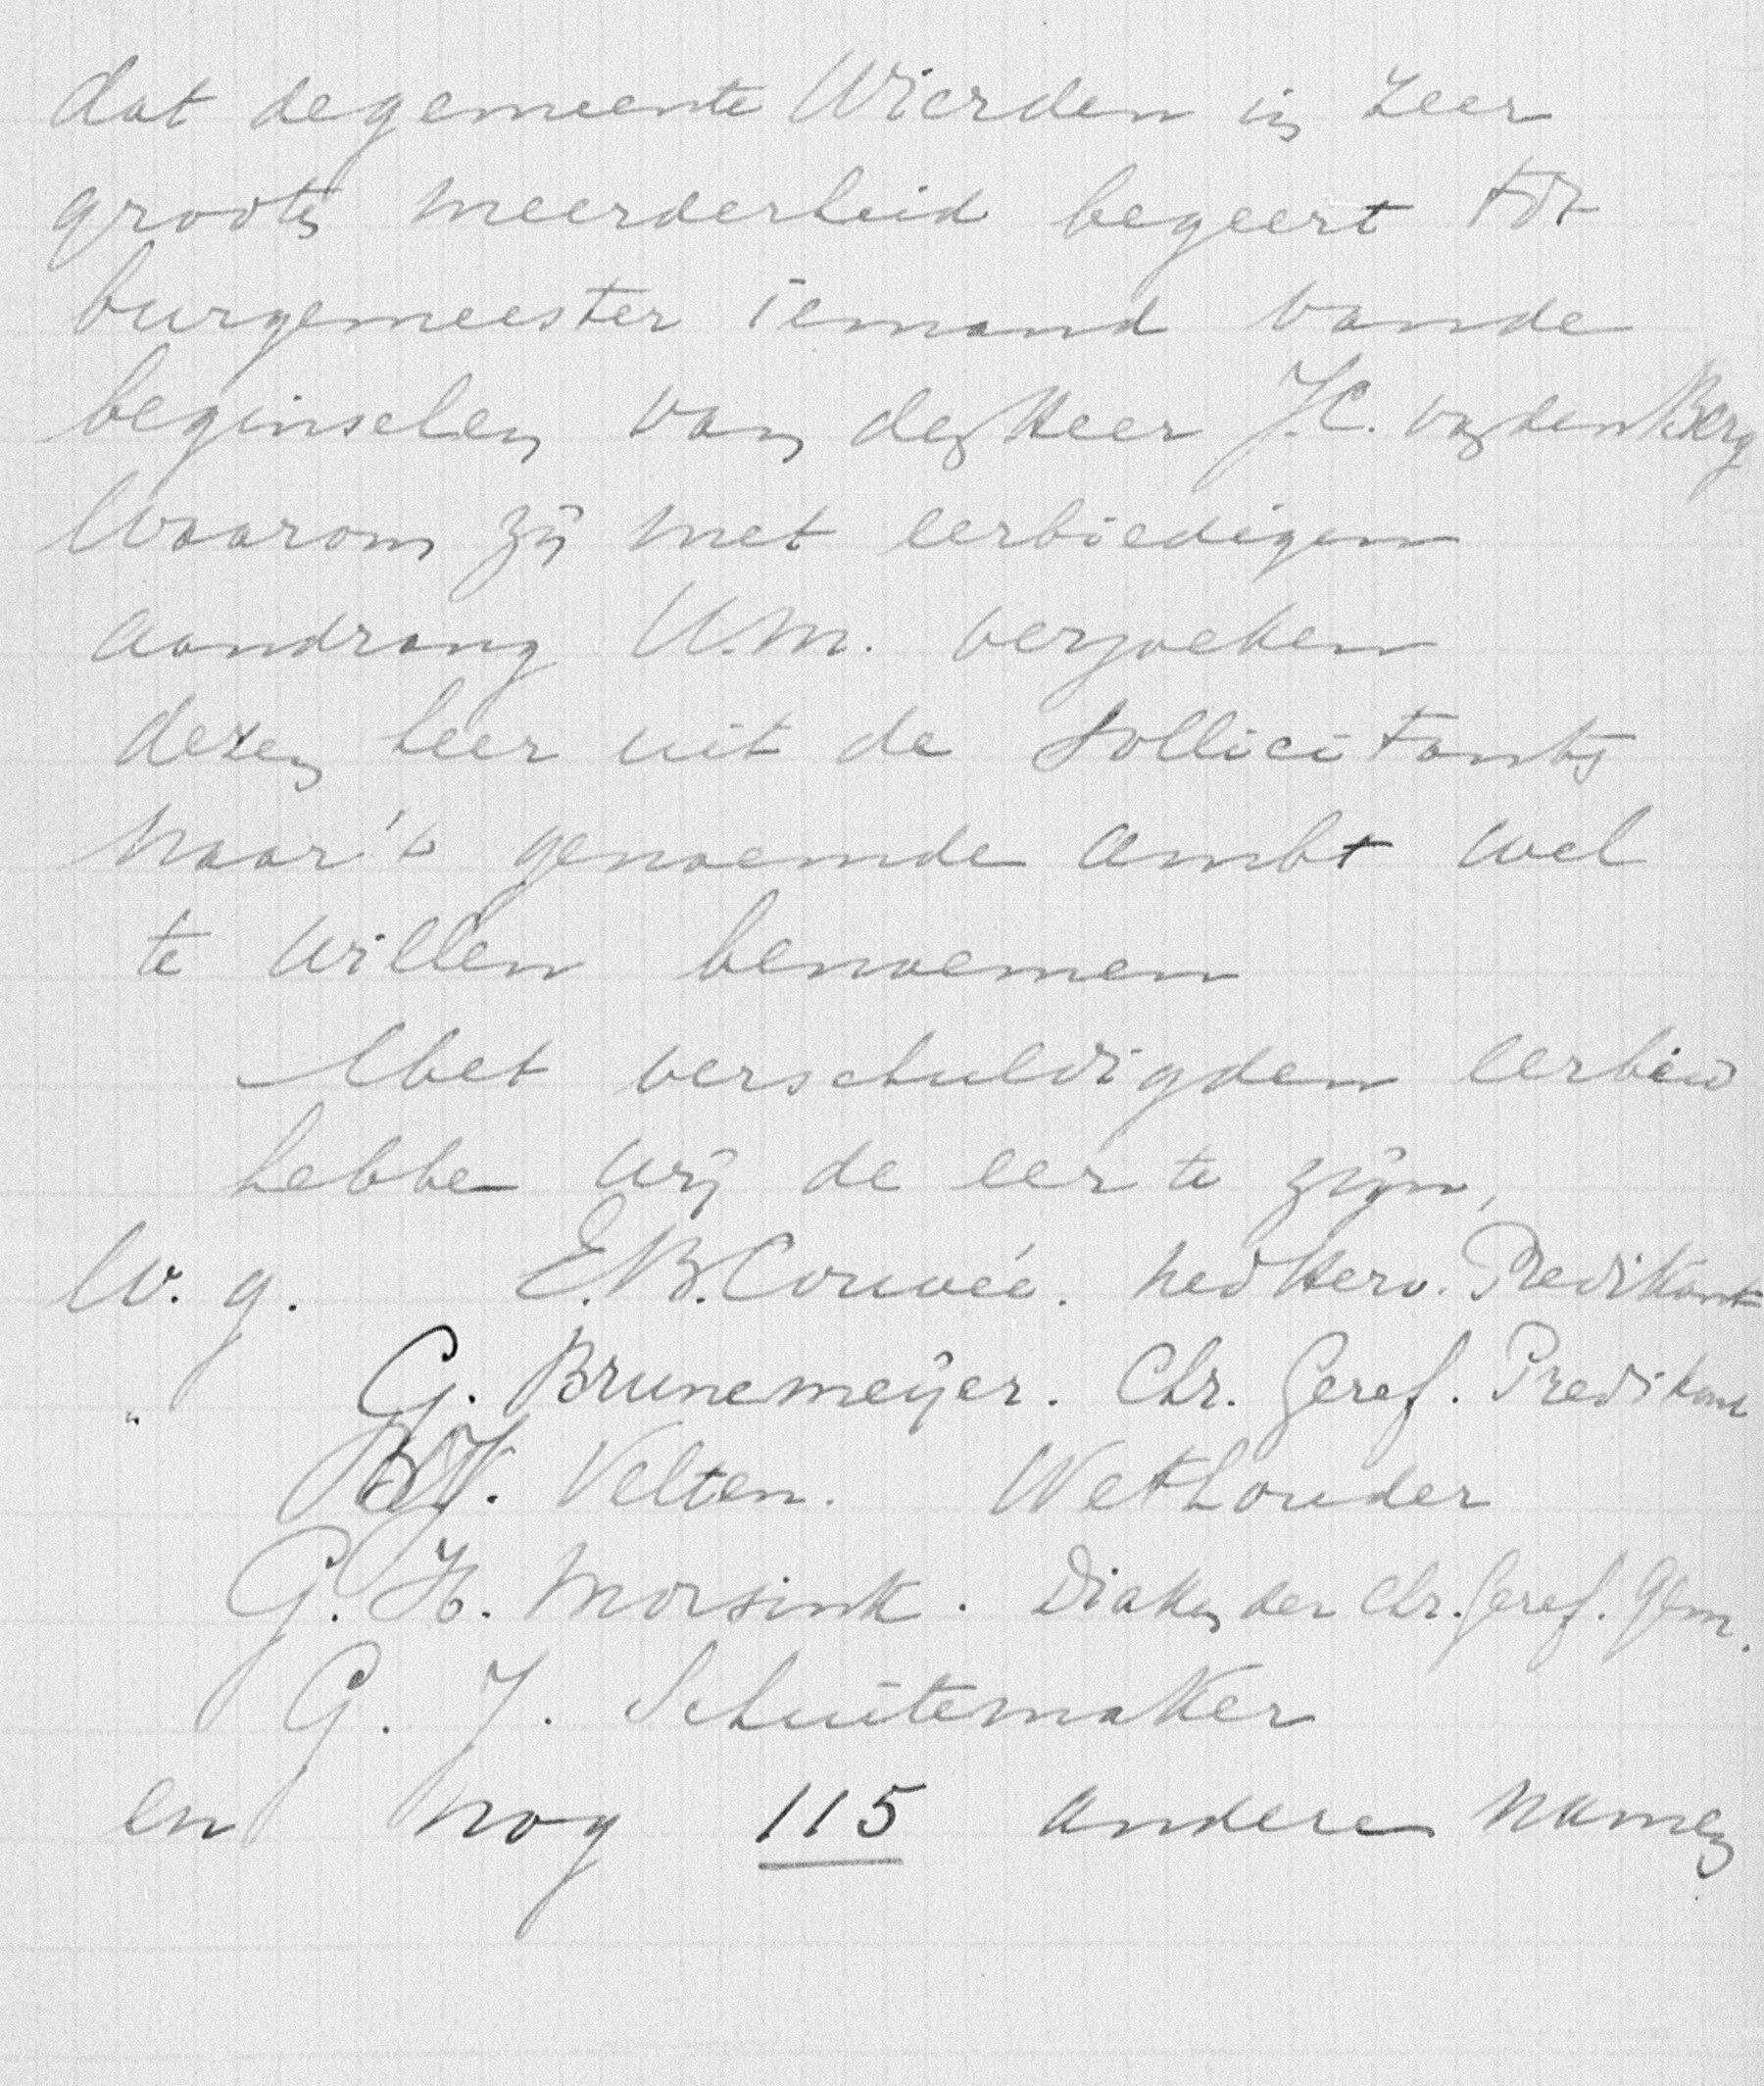 dat de gemeente Wierden in zeer
groote meerderheid begeert tot
burgemeester iemand van de
beginselen van den Heer J.C. van den Berg
Waarom zij met eerbiedigen
aandrang U.M. verzoeken
dezen heer uit de sollicitanten
naar 't genoemde ambt wel
te willen benoemen
Met verschuldigden eerbied
hebben wij de eer te zijn,
W. g. E.B. Couvée. Ned Herv. Predikant
" G. Brunemeijer. Chr. Geref. Predikant
Velten. Wethouder
G. H. Morsink. Diaken der Chr. Geref. Gem.
G. J. Schuitemaker
en nog 115 andere namen